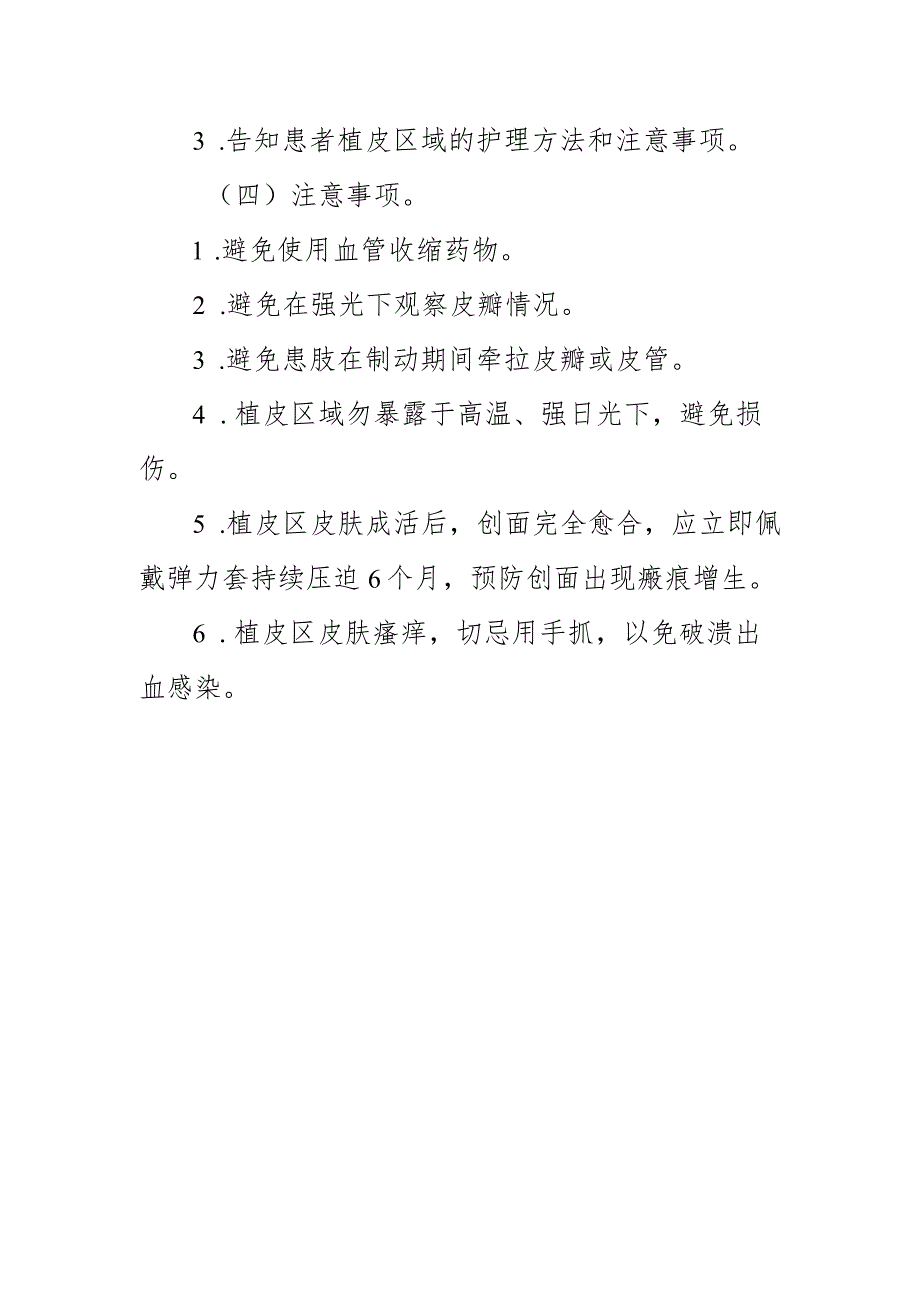 3 .告知患者植皮区域的护理方法和注意事项。
（四）注意事项。
1 .避免使用血管收缩药物。
2 .避免在强光下观察皮瓣情况。
3 .避免患肢在制动期间牵拉皮瓣或皮管。
4 . 植皮区域勿暴露于高温、强日光下，避免损
伤。
5 .植皮区皮肤成活后，创面完全愈合，应立即佩
戴弹力套持续压迫 6 个月，预防创面出现瘢痕增生。
6 . 植皮区皮肤瘙痒，切忌用手抓，以免破溃出
血感染。